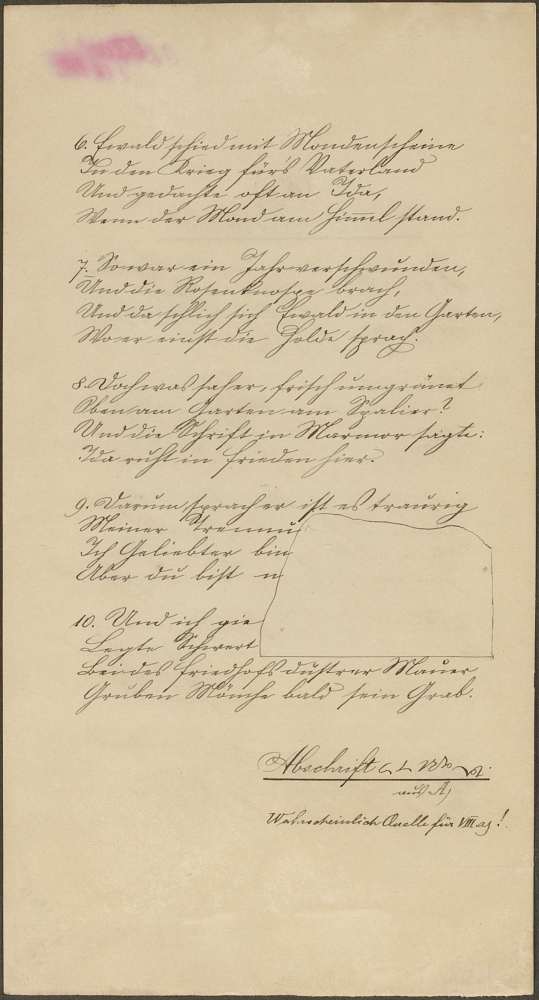 6. Ewald schied mit Mondenscheine
In den Krieg für's Vaterland
Und gedachte oft an Ida,
Wenn der Mond am Himmel stand.
7. So war ein Jahr verschwunden,
Und die Rosenknospe brach,
Und da schlich sich Ewald in den Garten,
Wo er einst die Holde sprach.
8. Doch was sah er, frisch umgrünet
Oben am Garten am Spalier?
Und die Schrift in Marmor sagte:
Ida ruht in Frieden hier.
9. Darum, sprach er ist es traurig
Meiner Trennu
Ich Geliebter bin
Aber du bist n
10. Und ich gie
Legte Schwert
Bei des Friedhofs düstrer Mauer
Gruben Mönche bald sein Grab.
Abschrift
aus A)
Wahrscheinlich Quelle für VIII. a) !